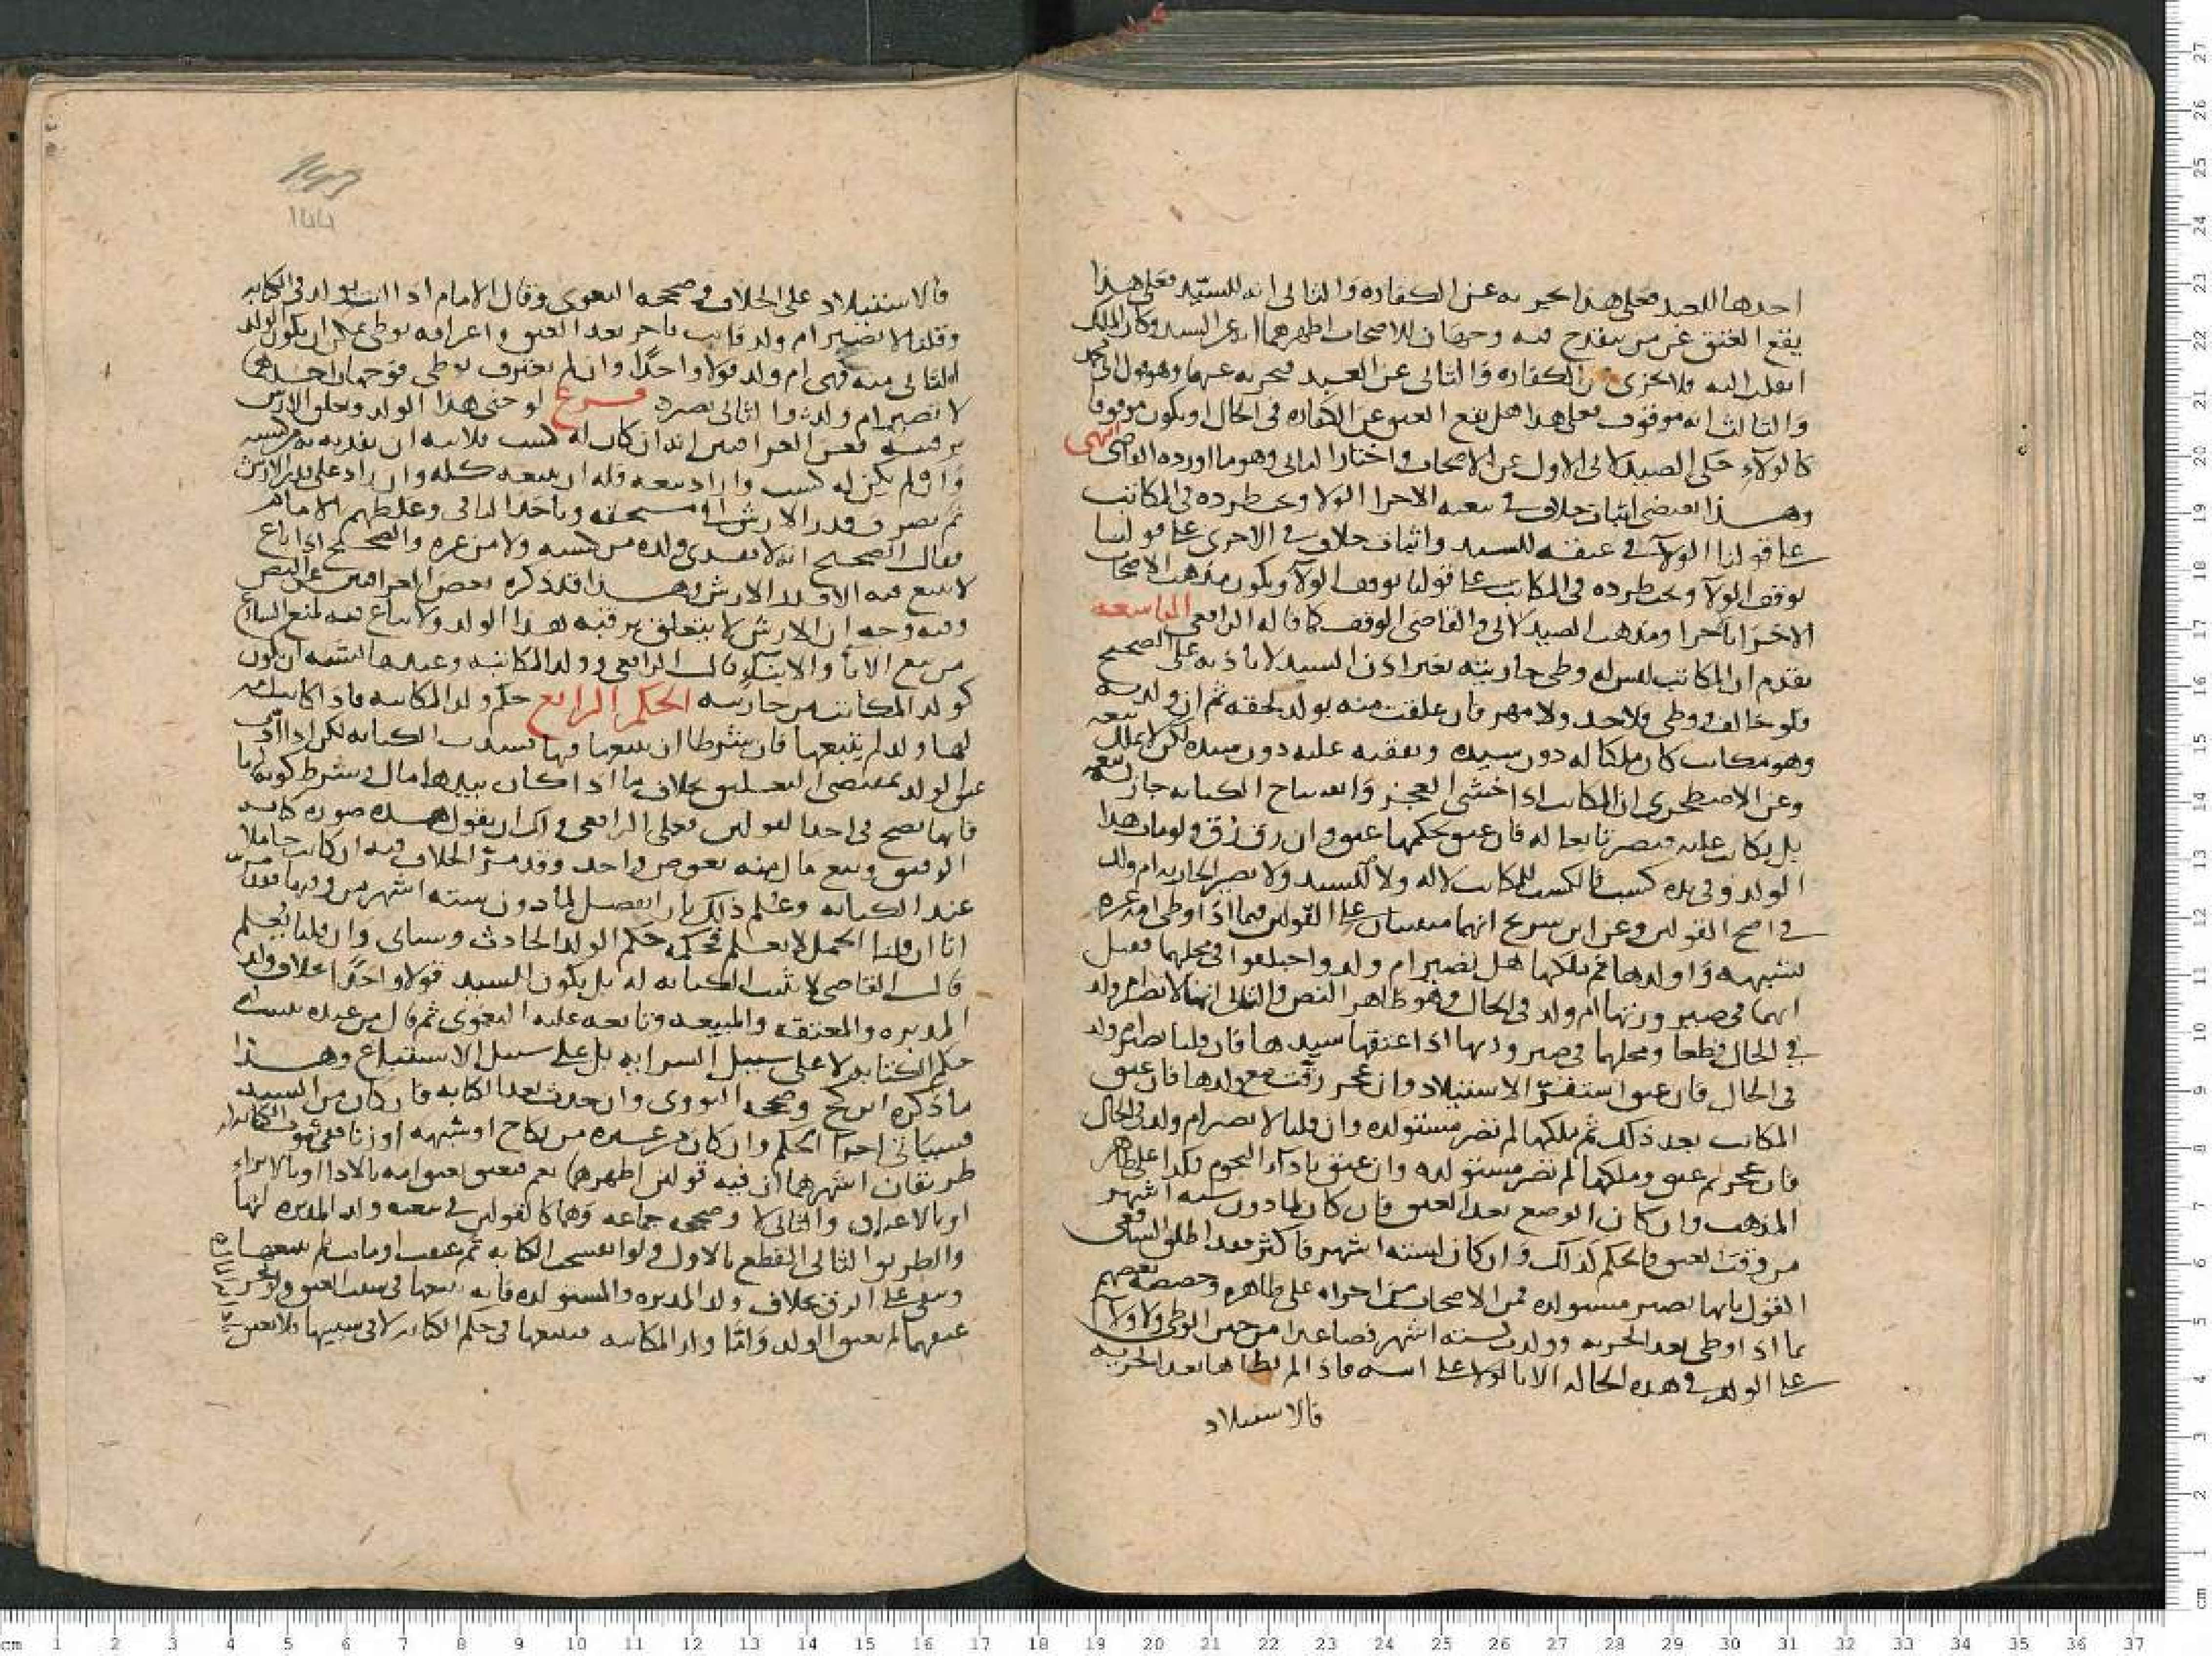 احدها للعبد فعلى هذا يجريه عن الكفاره والثاني انه للسيد فعلى هذا
يقع العتق عن من ينقدح فيه وجهان للاصحاب اظهرهما انه عن السيد وكان الملك
انقلب اليه فلا يجزي عن الكفاره والثاني عن العبد فيجزيه عنها وهو
والثالث انه موقوف فعلى هذا هل يقع العتق عن الكفاره في الحال او يكون موقوفا
كالولاء حكى الصيدلاني الاول عن الاصحاب واختار الثاني وهو ما اورده القاضي انتهى
وهذا يقتضي اثبات خلاف في تبعيه الاجزا الولا ويجب طرده في المكاتب
على قولنا الولاء في عتقه للسيد واثبات خلاف في الاجزى على قولنا
يوقف الولاء ويجب طرده في المكاتب على قولنا يوقف الولاء ويكون مذهب الاصحاب
الاجزا ومذهب الصيدلاني والقاضي الوقف كما قاله الرافعي التاسعه
تقدم ان المكاتب ليس له وطي جاريته بغير اذن السيد لا باذنه على الصحيح
فلو خالف ووطي فلا حد ولا مهر فان علقت منه بولد لحقه ثم ان ولدته
وهو مكاتب كان ملكا له دون سيده ونفقته عليه دون سيده لكن لا يملك بيعه
وعن الاصطخري ان المكاتب اذا خشي العجز وانفساخ الكتابه جاز له بيعه
بل يكاتب عليه فيصير تابعا له فان عتق بحكمها عتق وان رق رق ولو مات هذا
الولد وفي يده كسب فالكسب للمكاتب لا له ولا للسيد ولا تصير الجاريه ام ولد
في اصح القولين وعن ابن سريج انهما مبنيان على القولين فيما اذا وطي امة غيره
بشبهه واولدها ثم ملكها هل تصير ام ولد واختلفوا في محلهما فقيل
انهما في صيرورتها ام ولد في الحال وهو ظاهر النص والثاني انها لا تصير ام ولد
في الحال قطعا ومحلهما في صيرورتها اذا اعتقها سيدها فان قلنا تصير ام ولد
في الحال فان عتق استقر الاستيلاد وان عجز رقت مع ولدها فان عتق
المكاتب بعد ذلك ثم ملكها لم تصر مستولده وان قلنا لا تصير ام ولد في الحال
فان عجز ثم عتق وملكها لم تصر مستولده وان عتق باداء النجوم فكذا على ظاهر
المذهب وان كان الوضع بعد العتق فان كان لما دون سته اشهر
من وقت العتق فالحكم كذلك وان كان لسته اشهر فاكثر فقد اطلق الشافعي
القول بانها تصير مستولده فمن الاصحاب من اجراه على ظاهره وخصصه بعضهم
بما اذا وطي بعد الحريه وولدت لسته اشهر فصاعدا من حين الوطي ولا ولاء
على الولد في هذه الحاله الا بالولاء على ابيه فاذا لم يطاها بعد الحريه
فالاستيلاد
فالاستيلاد على الخلاف وصححه البغوي وقال الامام اذا اتت بولد في الكتابه
وقلنا لا تصير ام ولد فاتت باخر بعد العتق واعترف بوطي يمكن ان يكون الولد
الثاني منه فهي ام ولد قولا واحدا وان لم يعترف بوطي فوجهان احدهما
لا تصير ام ولد والثاني تصير فرع لو جنى هذا الولد وتعلق الارش
برقبته فعن العراقيين انه ان كان له كسب فلابيه ان يفديه به من كسبه
وان لم يكن له كسب واراد بيعه فله ان يبيعه كله وان زاد على قدر الارش
ثم يصرف قدر الارش الى مستحقه وياخذ الباقي وغلطهم الامام
فقال الصحيح انه لا يفدي ولده من كسبه ولا من غيره والصحيح اذا باع
لا يبيع منه الا قدر الارش وهذا قد ذكره بعض العراقيين عن النص
وفيه وجه ان الارش لا يتعلق برقبة هذا الولد ولا يباع فيه لمنع الشرع
من بيع الابا والابناء قال الرافعي وولد المكاتبه وعبدها يشبه ان يكون
كولد المكاتب من جاريته الحكم الرابع حكم ولد المكاتبه فاذا كاتب امه
لها ولد لم يتبعها فان شرطا ان يتبعها فيها فسدت الكتابه لكن اذا ادت
عتق الولد بمقتضى التعليق بخلاف ما اذا كان بيدها مال وشرط كونه لها
فانها تصح في احد القولين فعلى الرافعي ولك ان تقول هذه صوره كتابة
الرقيق وبيع مال منه بعوض واحد وقد مر الخلاف فيه ان كانت حاملا
عند الكتابه وعلم ذلك بان انفصل لما دون سته اشهر من يومها
انا ان قلنا الحمل لا يعلم فحكمه حكم الولد الحادث وسياتي وان قلنا يعلم
قال القاضي لا تثبت الكتابه له بل يكون للسيد قولا واحدا بخلاف ولد
المدبره والمعتقه والمبيعه وتابعه عليه البغوي ثم قال من عنده يثبت له
حكم الكتابه لا على سبيل السرايه بل على سبيل الاستتباع وهذا
ما ذكره ابن كج وصححه النووي وان حدث بعد الكتابه فان كان من السيد
فسياتي اخر الحكم وان كان من غيره من نكاح او شبهه او زنا ففي ثبوت الكتابه له
طريقان اشهرهما ان فيه قولين اظهرهما نعم فيعتق بعتق امه بالادا او بالابراء
او بالاعتاق والثاني لا وصححه جماعه وهما كالقولين في تبعيه ولد المدبره لها
والطريق الثاني القطع بالاول ولو انفسخت الكتابه ثم عتقت او ماتت لم يتبعها
وبقي على الرق بخلاف ولد المدبره والمستولده فانه يتبعها في سبب العتق ولو نجز
عتقهما لم يعتق الولد واما ولد المكاتبه فيتبعها في حكم الكتابه لا في سببها فلا يعتق